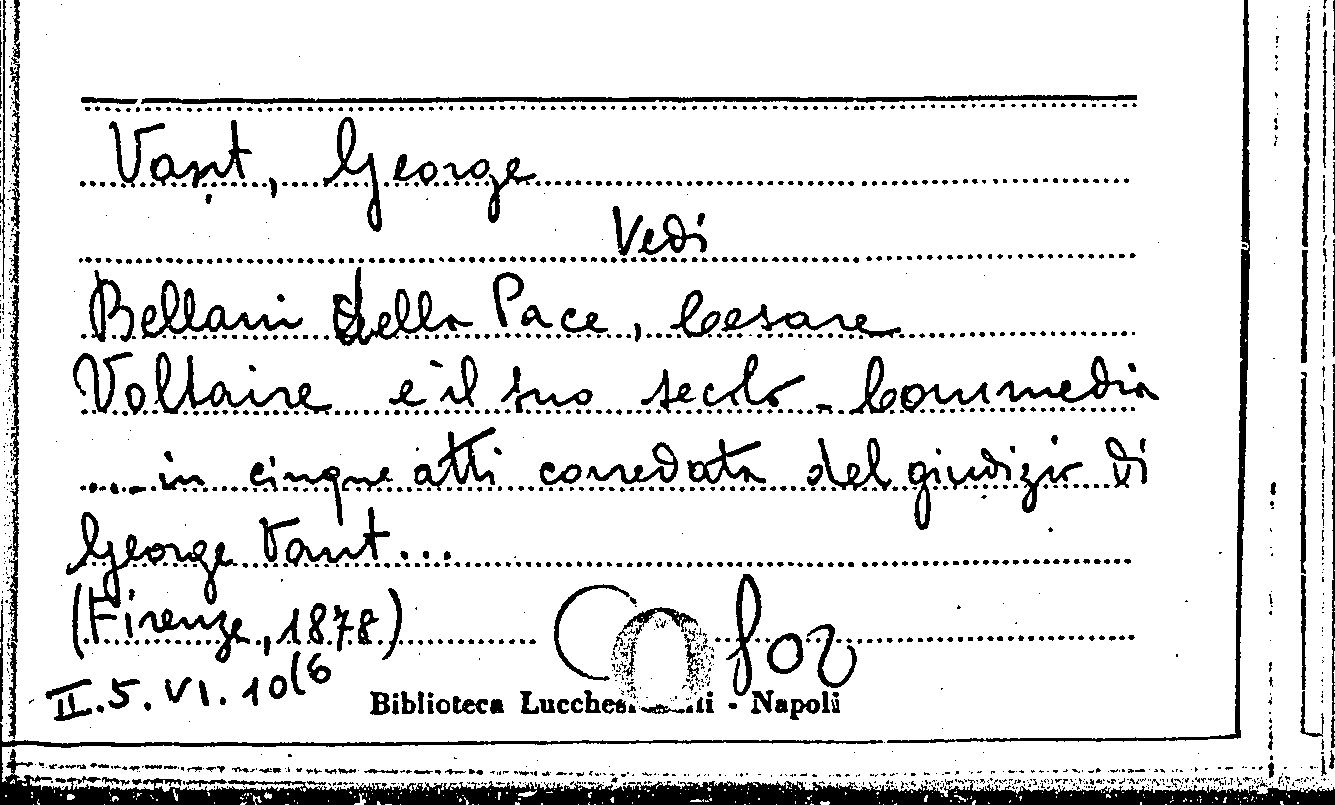 Vant, George
Vedi
Bellani della Pace, Cesare
Voltaire e il suo secolo - Commedia
... in cinque atti corredata del giudizio di
George Vant...
(Firenze, 1878)
II.5.VI.10(6
Biblioteca - Napoli